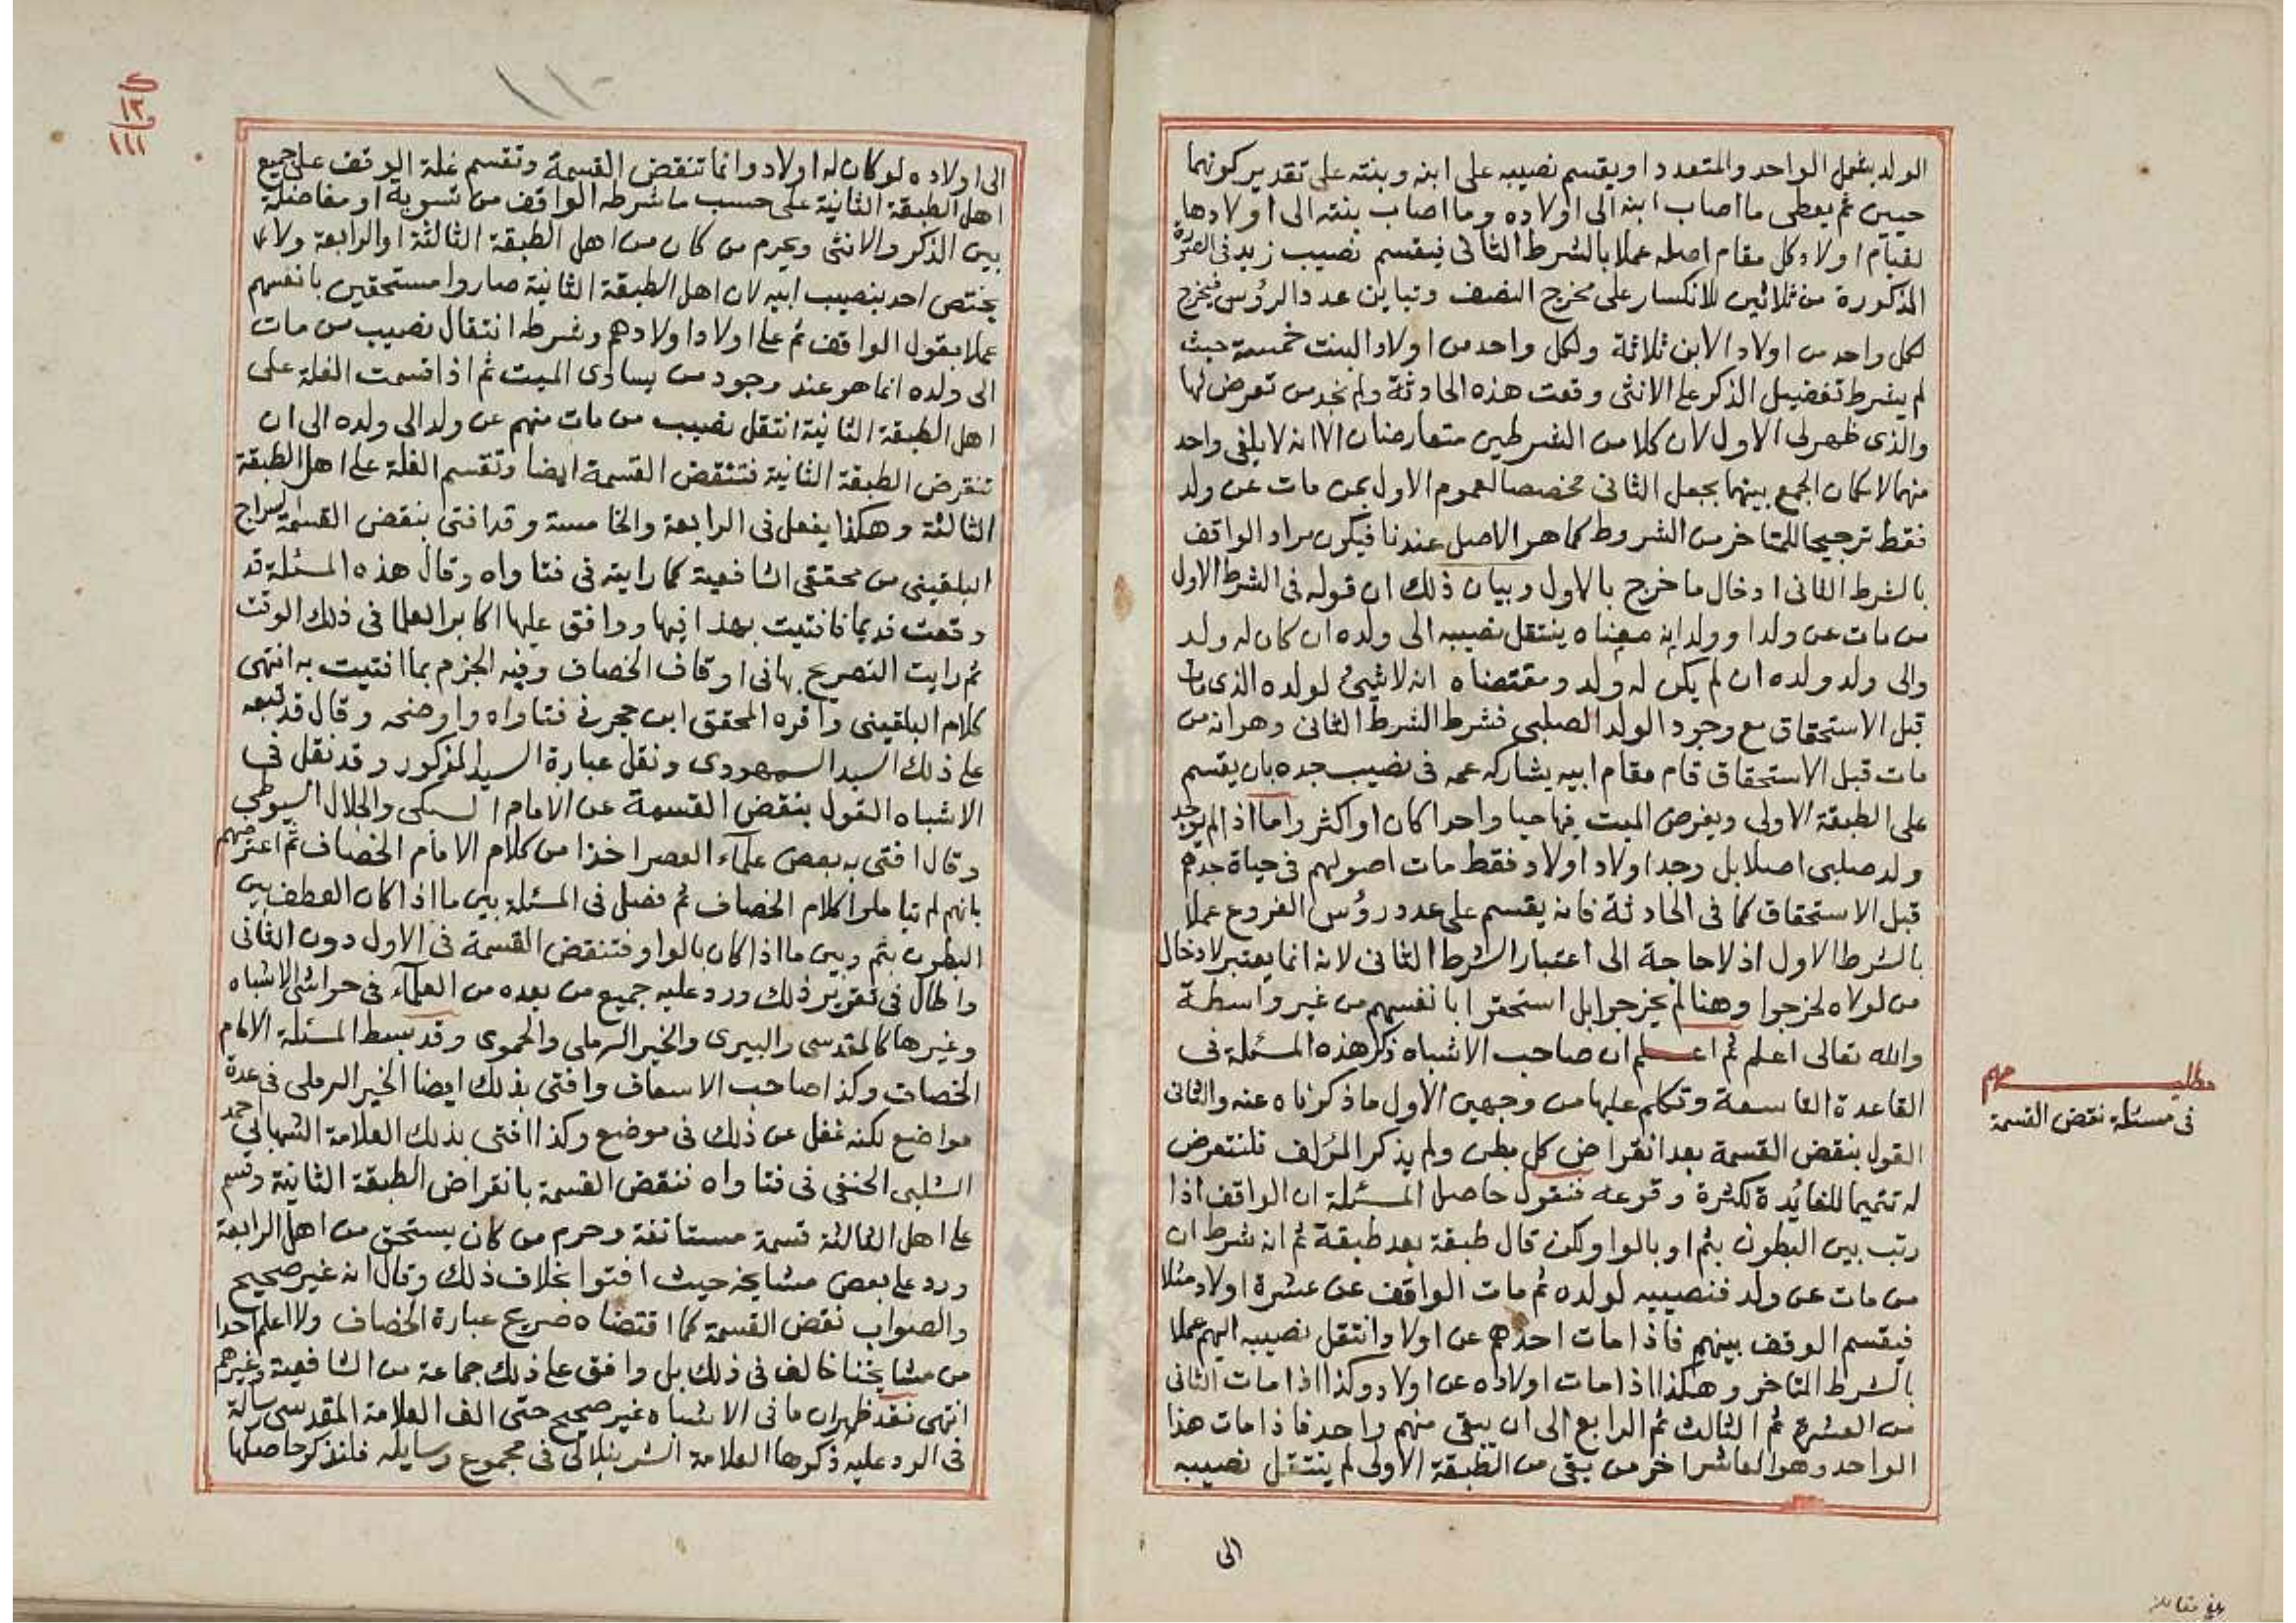 الولد يشمل الواحد والمتعدد او يقسم نصيبه على ابنه وبنته على تقدير كونهما
حيين ثم يعطى ما اصاب ابنه الى اولاده وما اصاب بنته الى اولادها
لقيام اولاد كل مقام اصله عملا بالشرط الثانى فيقسم نصيب زيد فى الصورة
المذكورة من ثلاثين للانكسار على مخرج النصف وتباين عدد الرؤس فيخرج
لكل واحد من اولاد الابن ثلاثة ولكل واحد من اولاد البنت خمسة حيث
لم يشرط تفضيل الذكر على الانثى وقعت هذه الحادثة ولم نجد من تعرض لها
والذى ظهر لى الاول لان كلا من الشرطين متعارضان الا انه لا يلغى واحد
منهما لامكان الجمع بينهما بجعل الثانى مخصصا لعموم الاول بمن مات عن ولد
فقط ترجيحا للمتاخر من الشروط كما هو الاصل عندنا فيكون مراد الواقف
بالشرط الثانى ادخال ما خرج بالاول وبيان ذلك ان قوله فى الشرط الاول
من مات عن ولد او ولد ابنه معناه ينتقل نصيبه الى ولده ان كان له ولد
والى ولد ولده ان لم يكن له ولد ومقتضاه انه لا شيئ لولده الذى مات
قبل الاستحقاق مع وجود الولد الصلبى فشرط الشرط الثانى وهو انه من
مات قبل الاستحقاق قام مقام ابيه يشاركه عمه فى نصيب جده بان يقسم
على الطبقة الاولى ويفرض الميت فيها حيا واحدا كان او اكثر واما اذا لم يوجد
ولد صلبى اصلا بل وجد اولاد اولاد فقط مات اصولهم فى حياة جدهم
قبل الاستحقاق كما فى الحادثة فانه يقسم على عدد رؤس الفروع عملا
بالشرط الاول اذ لا حاجة الى اعتبار الشرط الثانى لانه انما يعتبر لادخال
من لولاه لخرجوا وهنا لم يخرجوا بل استحقوا بانفسهم من غير واسطة
والله تعالى اعلم ثم اعلم ان صاحب الاشباه ذكر هذه المسئلة فى
القاعدة التاسعة وتكلم عليها من وجهين الاول ما ذكرناه عنه والثانى
القول بنقض القسمة بعد انقراض كل بطن ولم يذكر المؤلف فلنتعرض
له تتميما للفائدة لكثرة وقوعه فنقول حاصل المسئلة ان الواقف اذا
رتب بين البطون بثم او بالواو لكن قال طبقة بعد طبقة ثم انه شرط ان
من مات عن ولد فنصيبه لولده ثم مات الواقف عن عشرة اولاد مثلا
فيقسم الوقف بينهم فاذا مات احدهم عن اولاد انتقل نصيبه اليهم عملا
بالشرط المتاخر وهكذا اذا مات اولاده عن اولاد وكذا اذا مات الثانى
من العشرة ثم الثالث ثم الرابع الى ان يبقى منهم واحد فاذا مات هذا
الواحد وهو العاشر اخر من بقى من الطبقة الاولى لم ينتقل نصيبه
الى
مطلب مهم
فى مسئلة نقض القسمة
بلغ مقابلة
الى اولاده لو كان له اولاد وانما تنقض القسمة وتقسم غلة الوقف على جميع
اهل الطبقة الثانية على حسب ما شرطه الواقف من تسوية او مفاضلة
بين الذكر والانثى ويحرم من كان من اهل الطبقة الثالثة او الرابعة ولا
يختص احد بنصيب ابيه لان اهل الطبقة الثانية صاروا مستحقين بانفسهم
عملا بقول الواقف ثم على اولاد اولادهم وشرطه انتقال نصيب من مات
الى ولده انما هو عند وجود من يساوى الميت ثم اذا قسمت الغلة على
اهل الطبقة الثانية انتقل نصيب من مات منهم عن ولد الى ولده الى ان
تنقرض الطبقة الثانية فتنقض القسمة ايضا وتقسم الغلة على اهل الطبقة
الثالثة وهكذا يفعل فى الرابعة والخامسة وقد افتى بنقض القسمة السراج
البلقينى من محققى الشافعية كما رايته فى فتاواه وقال هذه المسئلة قد
وقعت قديما فافتيت بهذا فيها ووافق عليها اكابر العلما فى ذلك الوقت
ثم رايت التصريح بها فى اوقاف الخصاف وفيه الجزم بما افتيت به انتهى
كلام البلقينى واقره المحقق ابن حجر فى فتاواه واوضحه وقال قد تبعه
على ذلك السيد السمهودى ونقل عبارة السيد المذكور وقد نقل فى
الاشباه القول بنقض القسمة عن الامام السبكى والجلال السيوطى
وقال افتى به بعض علماء العصر اخذا من كلام الامام الخصاف ثم اعترضهم
بانهم لم يتاملوا كلام الخصاف ثم فصل فى المسئلة بين ما اذا كان العطف بين
البطون بثم وبين ما اذا كان بالواو فتنقض القسمة فى الاول دون الثانى
واطال فى تقرير ذلك ورد عليه جميع من بعده من العلماء فى حواشى الاشباه
وغيرها كالمقدسى والبيرى والخير الرملى والحموى وقد بسط المسئلة الامام
الخصاف وكذا صاحب الاسعاف وافتى بذلك ايضا الخير الرملى فى عدة
مواضع لكنه غفل عن ذلك فى موضع وكذا افتى بذلك العلامة الشهاب احمد
الشلبى الحنفى فى فتاواه فنقض القسمة بانقراض الطبقة الثانية وقسم
على اهل الثالثة قسمة مستانفة وحرم من كان يستحق من اهل الرابعة
ورد على بعض مشايخه حيث افتوا بخلاف ذلك وقال انه غير صحيح
والصواب نقض القسمة كما اقتضاه صريح عبارة الخصاف ولا اعلم احدا
من مشايخنا خالف فى ذلك بل وافق على ذلك جماعة من الشافعية وغيرهم
انتهى فقد ظهر ان ما فى الاشباه غير صحيح حتى الف العلامة المقدسى رسالة
فى الرد عليه ذكرها العلامة الشرنبلالى فى مجموع رسايله فلنذكر حاصلها